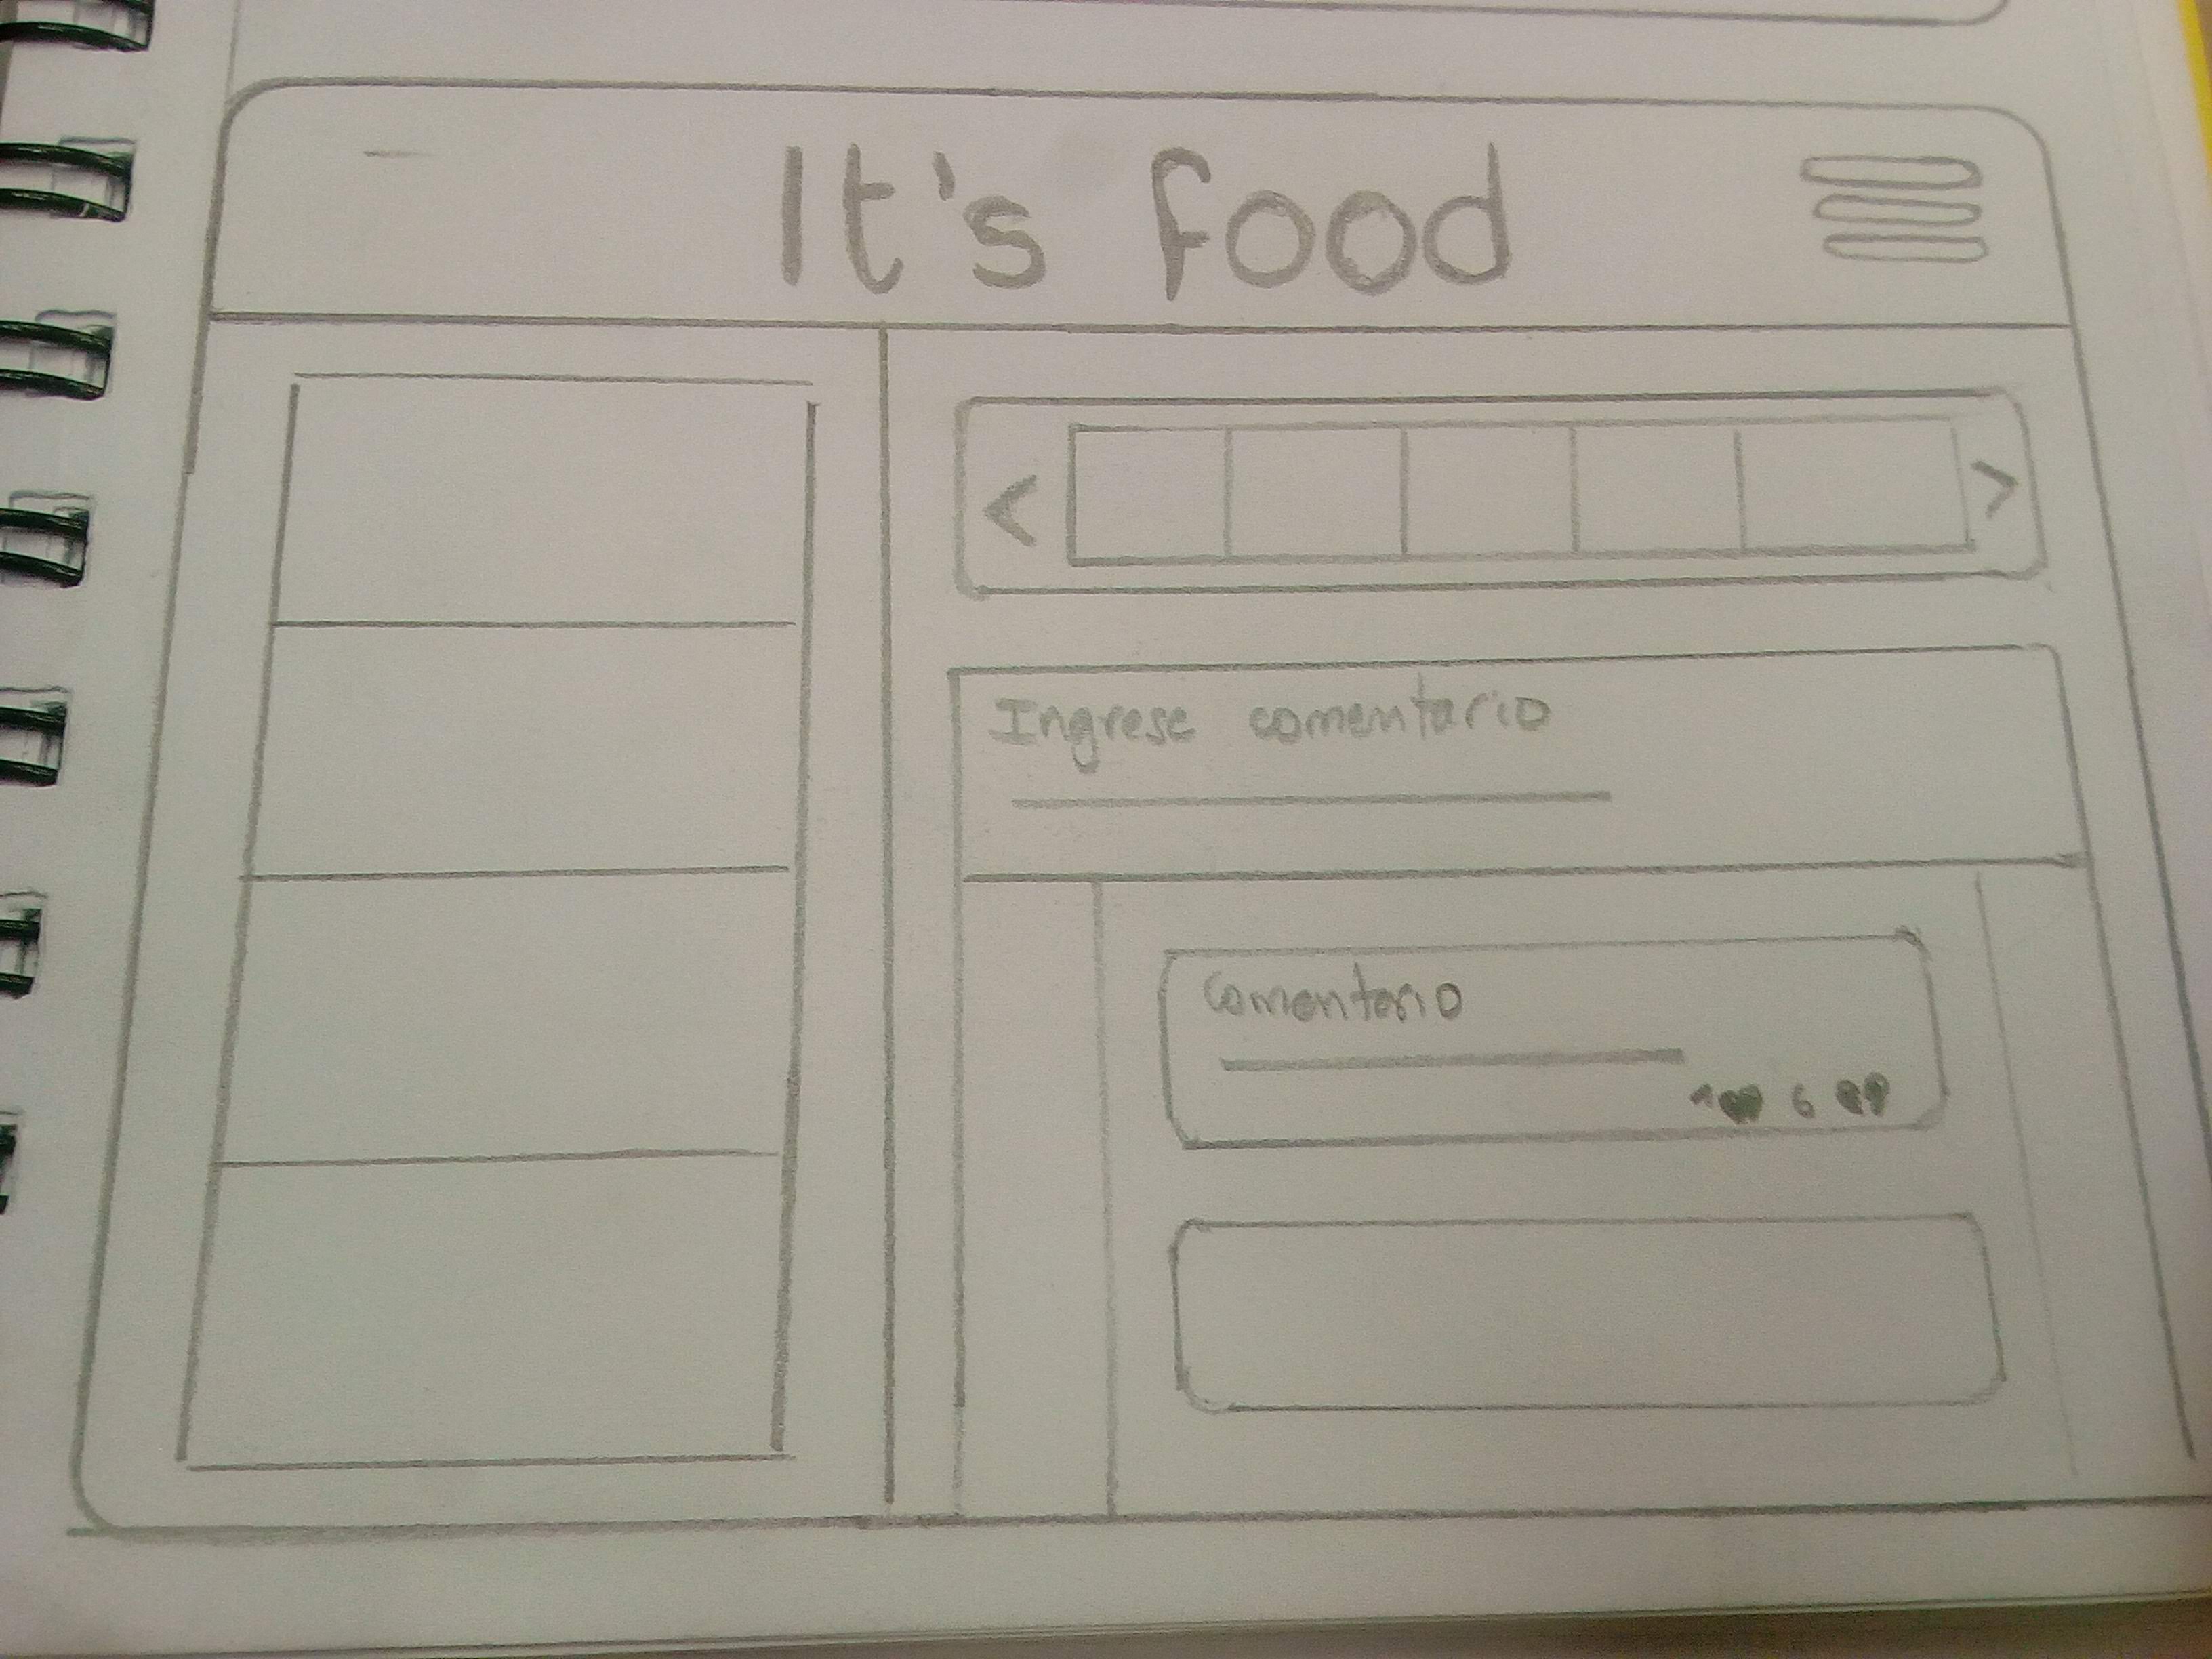 It's food
< >
Ingrese comentario
comentario
6